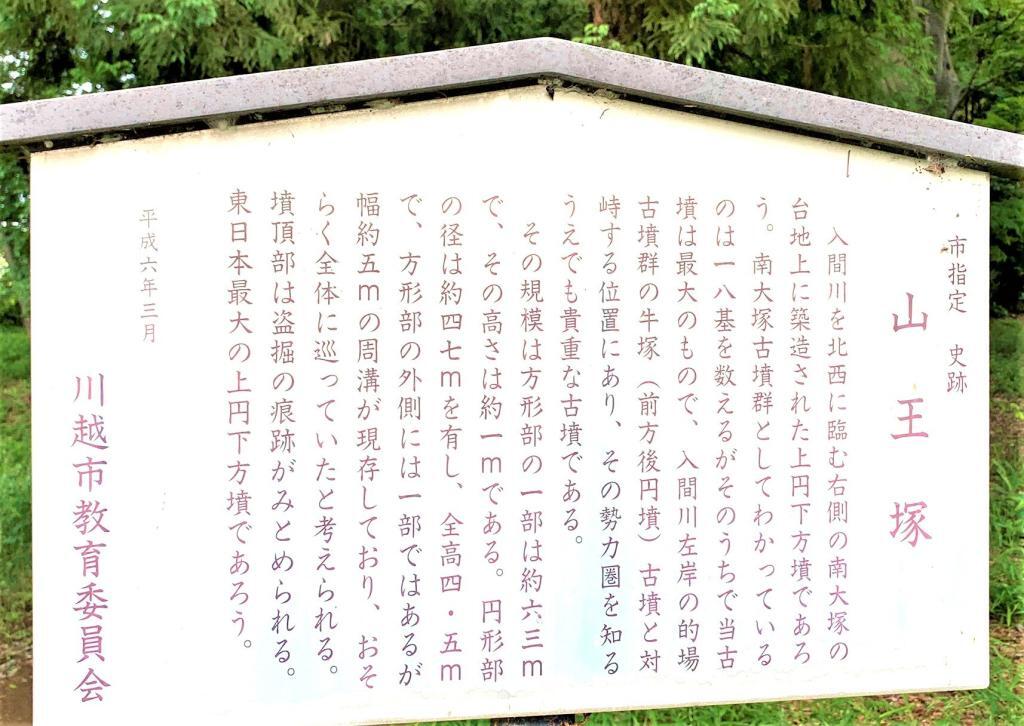 市指定 史跡
山王塚
入間川を北西に臨む右側の南大塚の
台地上に築造された上円下方墳であろ
う。南大塚古墳群としてわかっている
のは一八基を数えるがそのうちで当古
墳は最大のもので、入間川左岸の的場
古墳群の牛塚（前方後円墳）古墳と対
峙する位置にあり、その勢力圏を知る
うえでも貴重な古墳である。
その規模は方形部の一部は約六三m
で、その高さは約一mである。円形部
の径は約四七mを有し、全高四・五m
で、方形部の外側には一部ではあるが
幅約五mの周溝が現存しており、おそ
らく全体に巡っていたと考えられる。
墳頂部は盗掘の痕跡がみとめられる。
東日本最大の上円下方墳であろう。
平成六年三月
川越市教育委員会